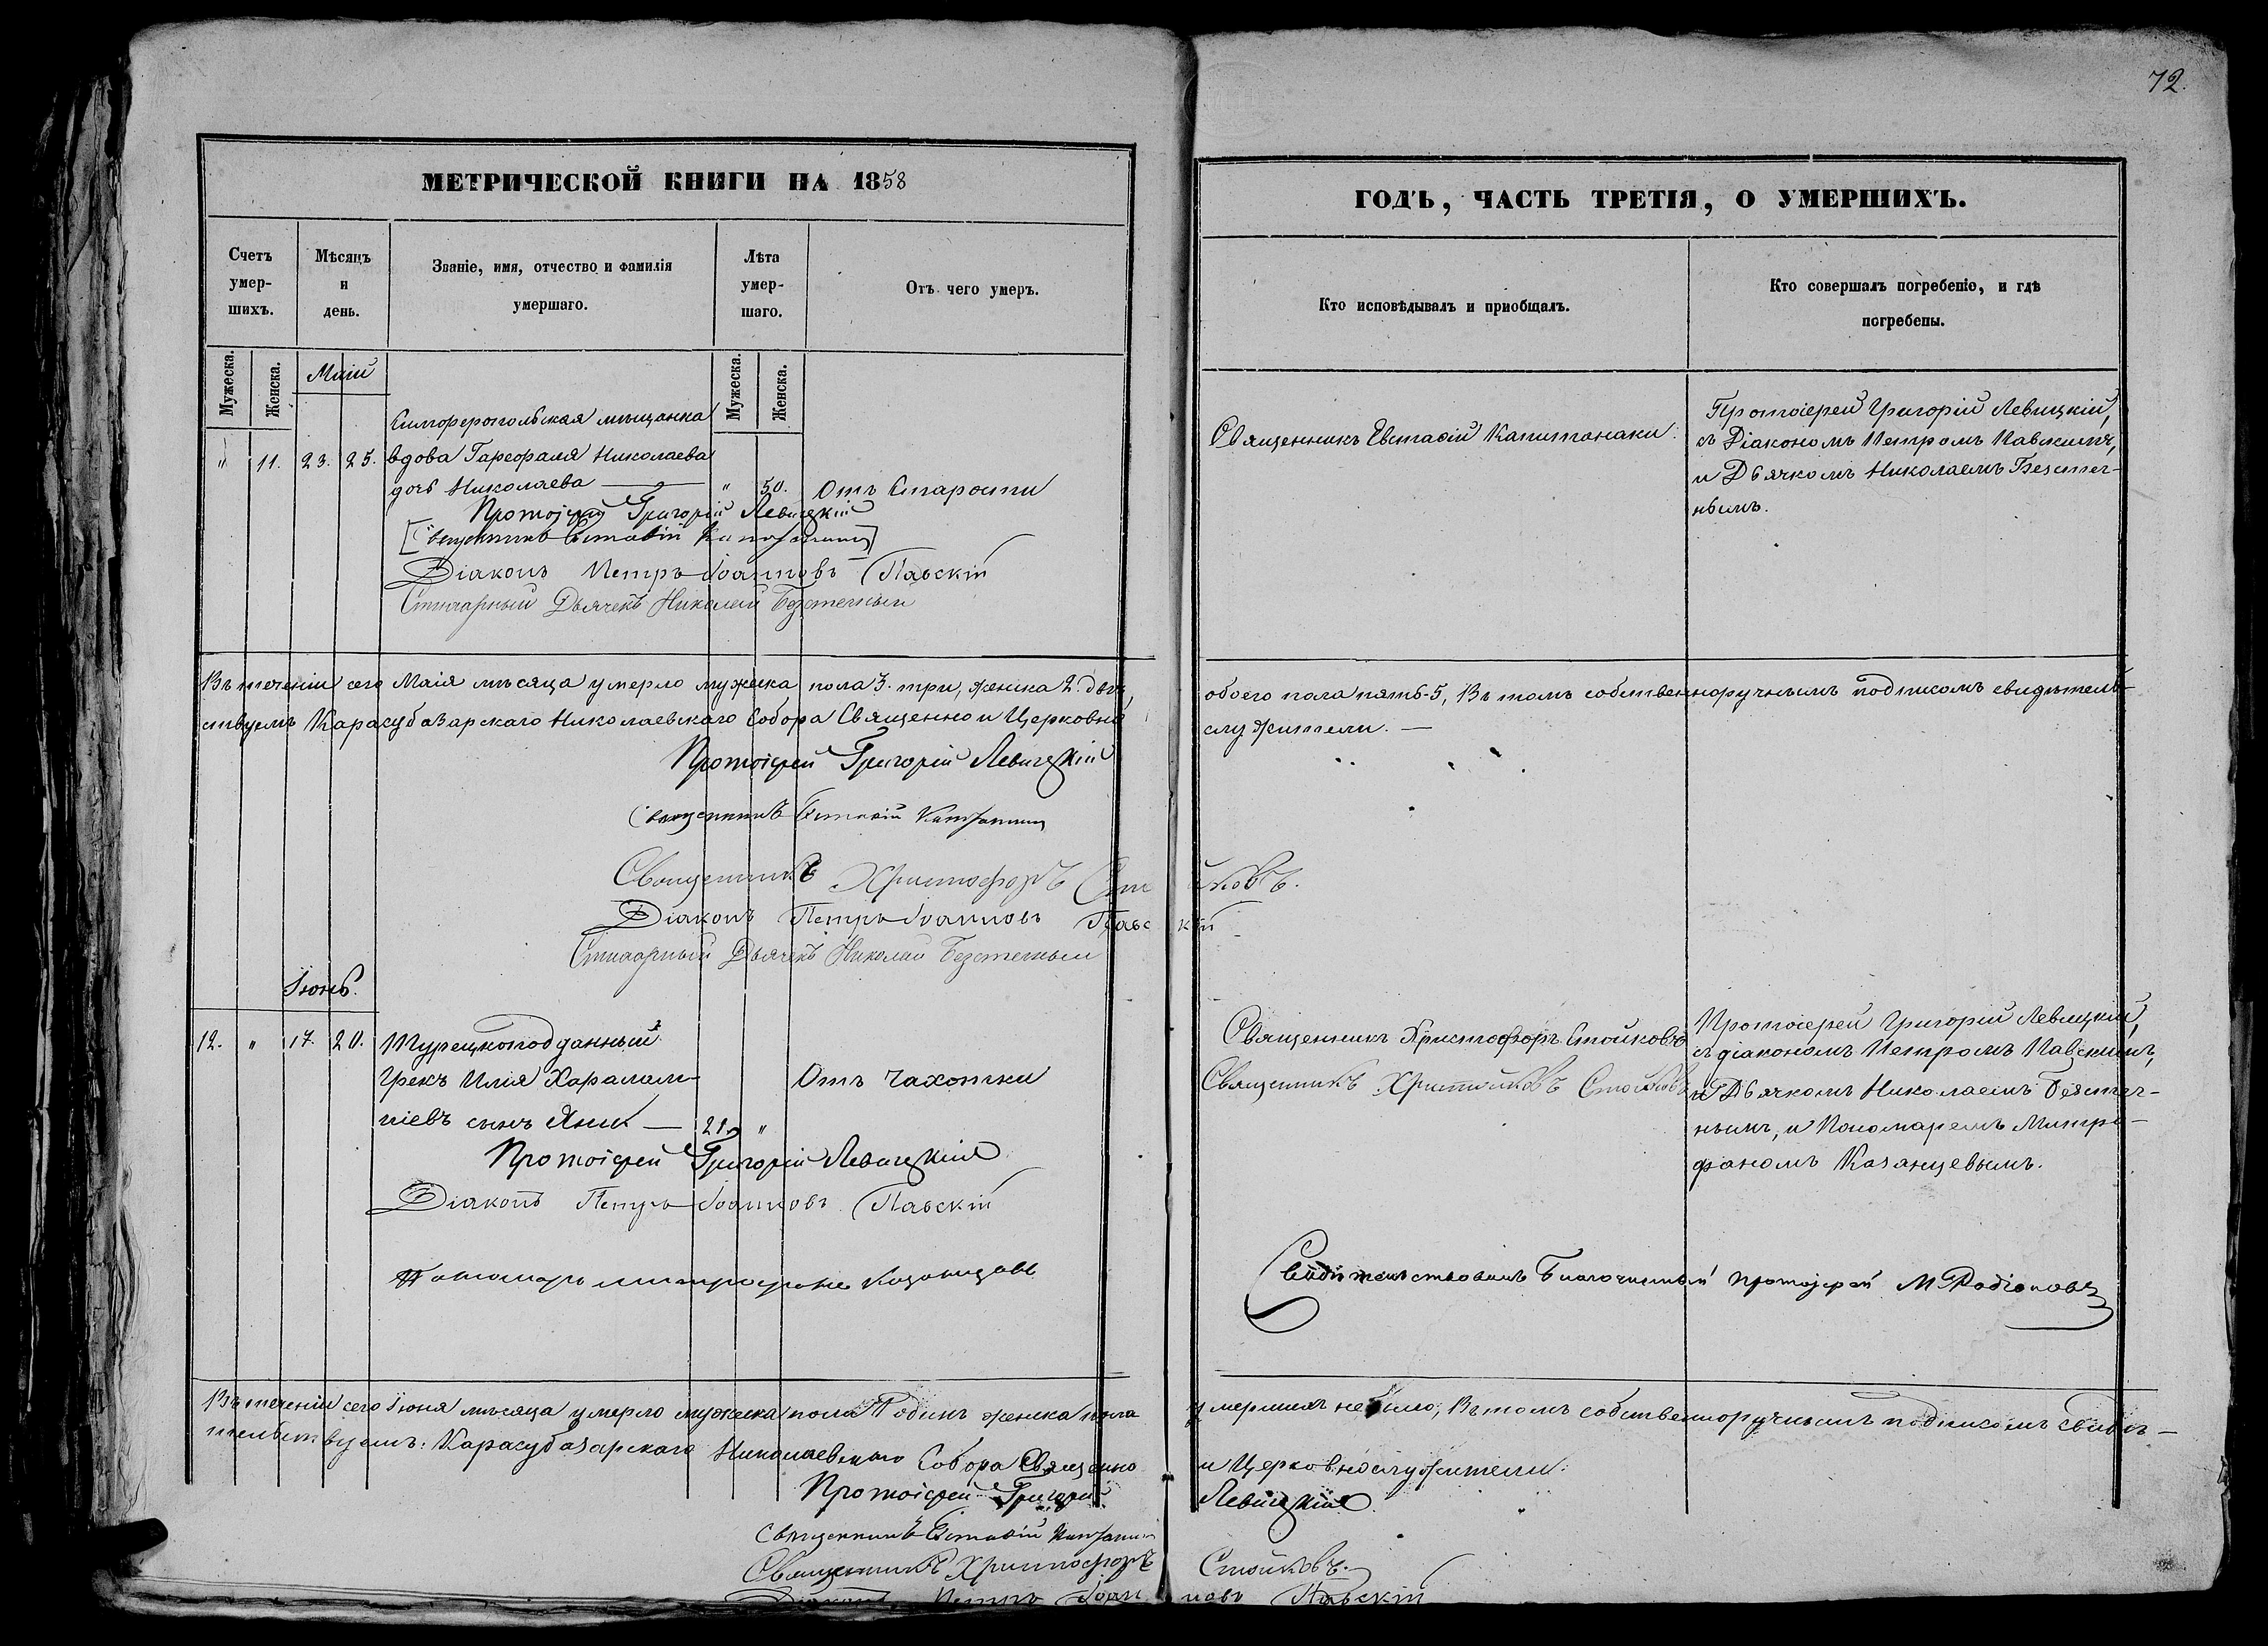 72.
МЕТРИЧЕСКОЙ КНИГИ НА 1858
Счетъ умер-шихъ.
Мѣсяцъ и день.
Званіе, имя, отчество и фамилія умершаго.
Лѣта умер-шаго.
Отъ чего умеръ.
Мужеска.
Женска.
Маій
Мужеска.
Женска.
Симферопольская мѣщанка
" 11. 23. 25. вдова Николаева
дочь Николаева — " 50. Отъ Старости
Протоіерей Григорій Левицкій
Священникъ Евстафій
Діаконъ Петръ Іоанновъ Павскій
Стихарный Дьячекъ Николай Безстечный
Въ теченіи сего Маія мѣсяца умерло мужеска пола 3. три, женска 2. двѣ,
ствуемъ Карасубазарскаго Николаевскаго Собора Священно и Церковно
Протоіерей Григорій Левицкій
Священникъ Евстафій
Священникъ Христофоръ Стойковъ.
Діаконъ Петръ Іоанновъ Павскій
Стихарный Дьячекъ Николай Безстечный
Іюнь.
12. " 17. 20. Турецкоподданный
Грекъ Илія Харалам- Отъ Чахотки
піевъ сынъ — 21. "
Протоіерей Григорій Левицкій
Діаконъ Петръ Іоанновъ Павскій
Пономарь Митрофанъ
Въ теченіи сего Іюня мѣсяца умерло мужеска пола 1 одинъ женска пола
тельствуемъ: Карасубазарскаго Николаевскаго Собора Священно
Протоіерей Григорій
Священникъ Евстафій
Священникъ Христофоръ
Діаконъ Петръ Іоан
ГОДЪ, ЧАСТЬ ТРЕТІЯ, О УМЕРШИХЪ.
Кто исповѣдывалъ и пріобщалъ.
Кто совершалъ погребеніе, и гдѣ
погребены.
Священникъ Евстафій Капитанаки.
Протоіерей Григорій Левицкій,
съ Діакономъ Петромъ Павскимъ,
и Дьячкомъ Николаемъ Безстеч-
нымъ.
обоего пола пять-5, Въ томъ собственноручнымъ подписомъ свидѣтель-
служители. —
Священникъ Христофоръ Стойковъ
Священникъ Стойковъ
Протоіерей Григорій Левицкій,
съ діакономъ Петромъ Павскимъ,
и Дьячкомъ Николаемъ Безстеч-
нымъ, и Пономаремъ Митро-
фаномъ Казанцевымъ.
Свидѣтельствовалъ Благочинный Протоіерей М Родіоновъ
умершихъ небыло, Въ томъ собственноручнымъ подписомъ свидѣ-
и Церковнослужители:
Левицкій
Стойковъ.
новъ Павскій